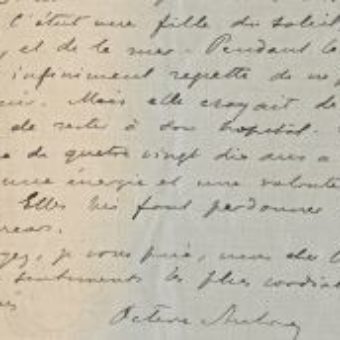 C'était une fille du soleil
et de la mer. Pendant le
infiniment regretté de ne p
Mais elle croyait de
de rester à son hopital.
de quatre vingt dix ans a
une énergie et une volonté
Elles lui font pardonner
je vous prie, mon cher
sentiments les plus cordia
Octave Aubry